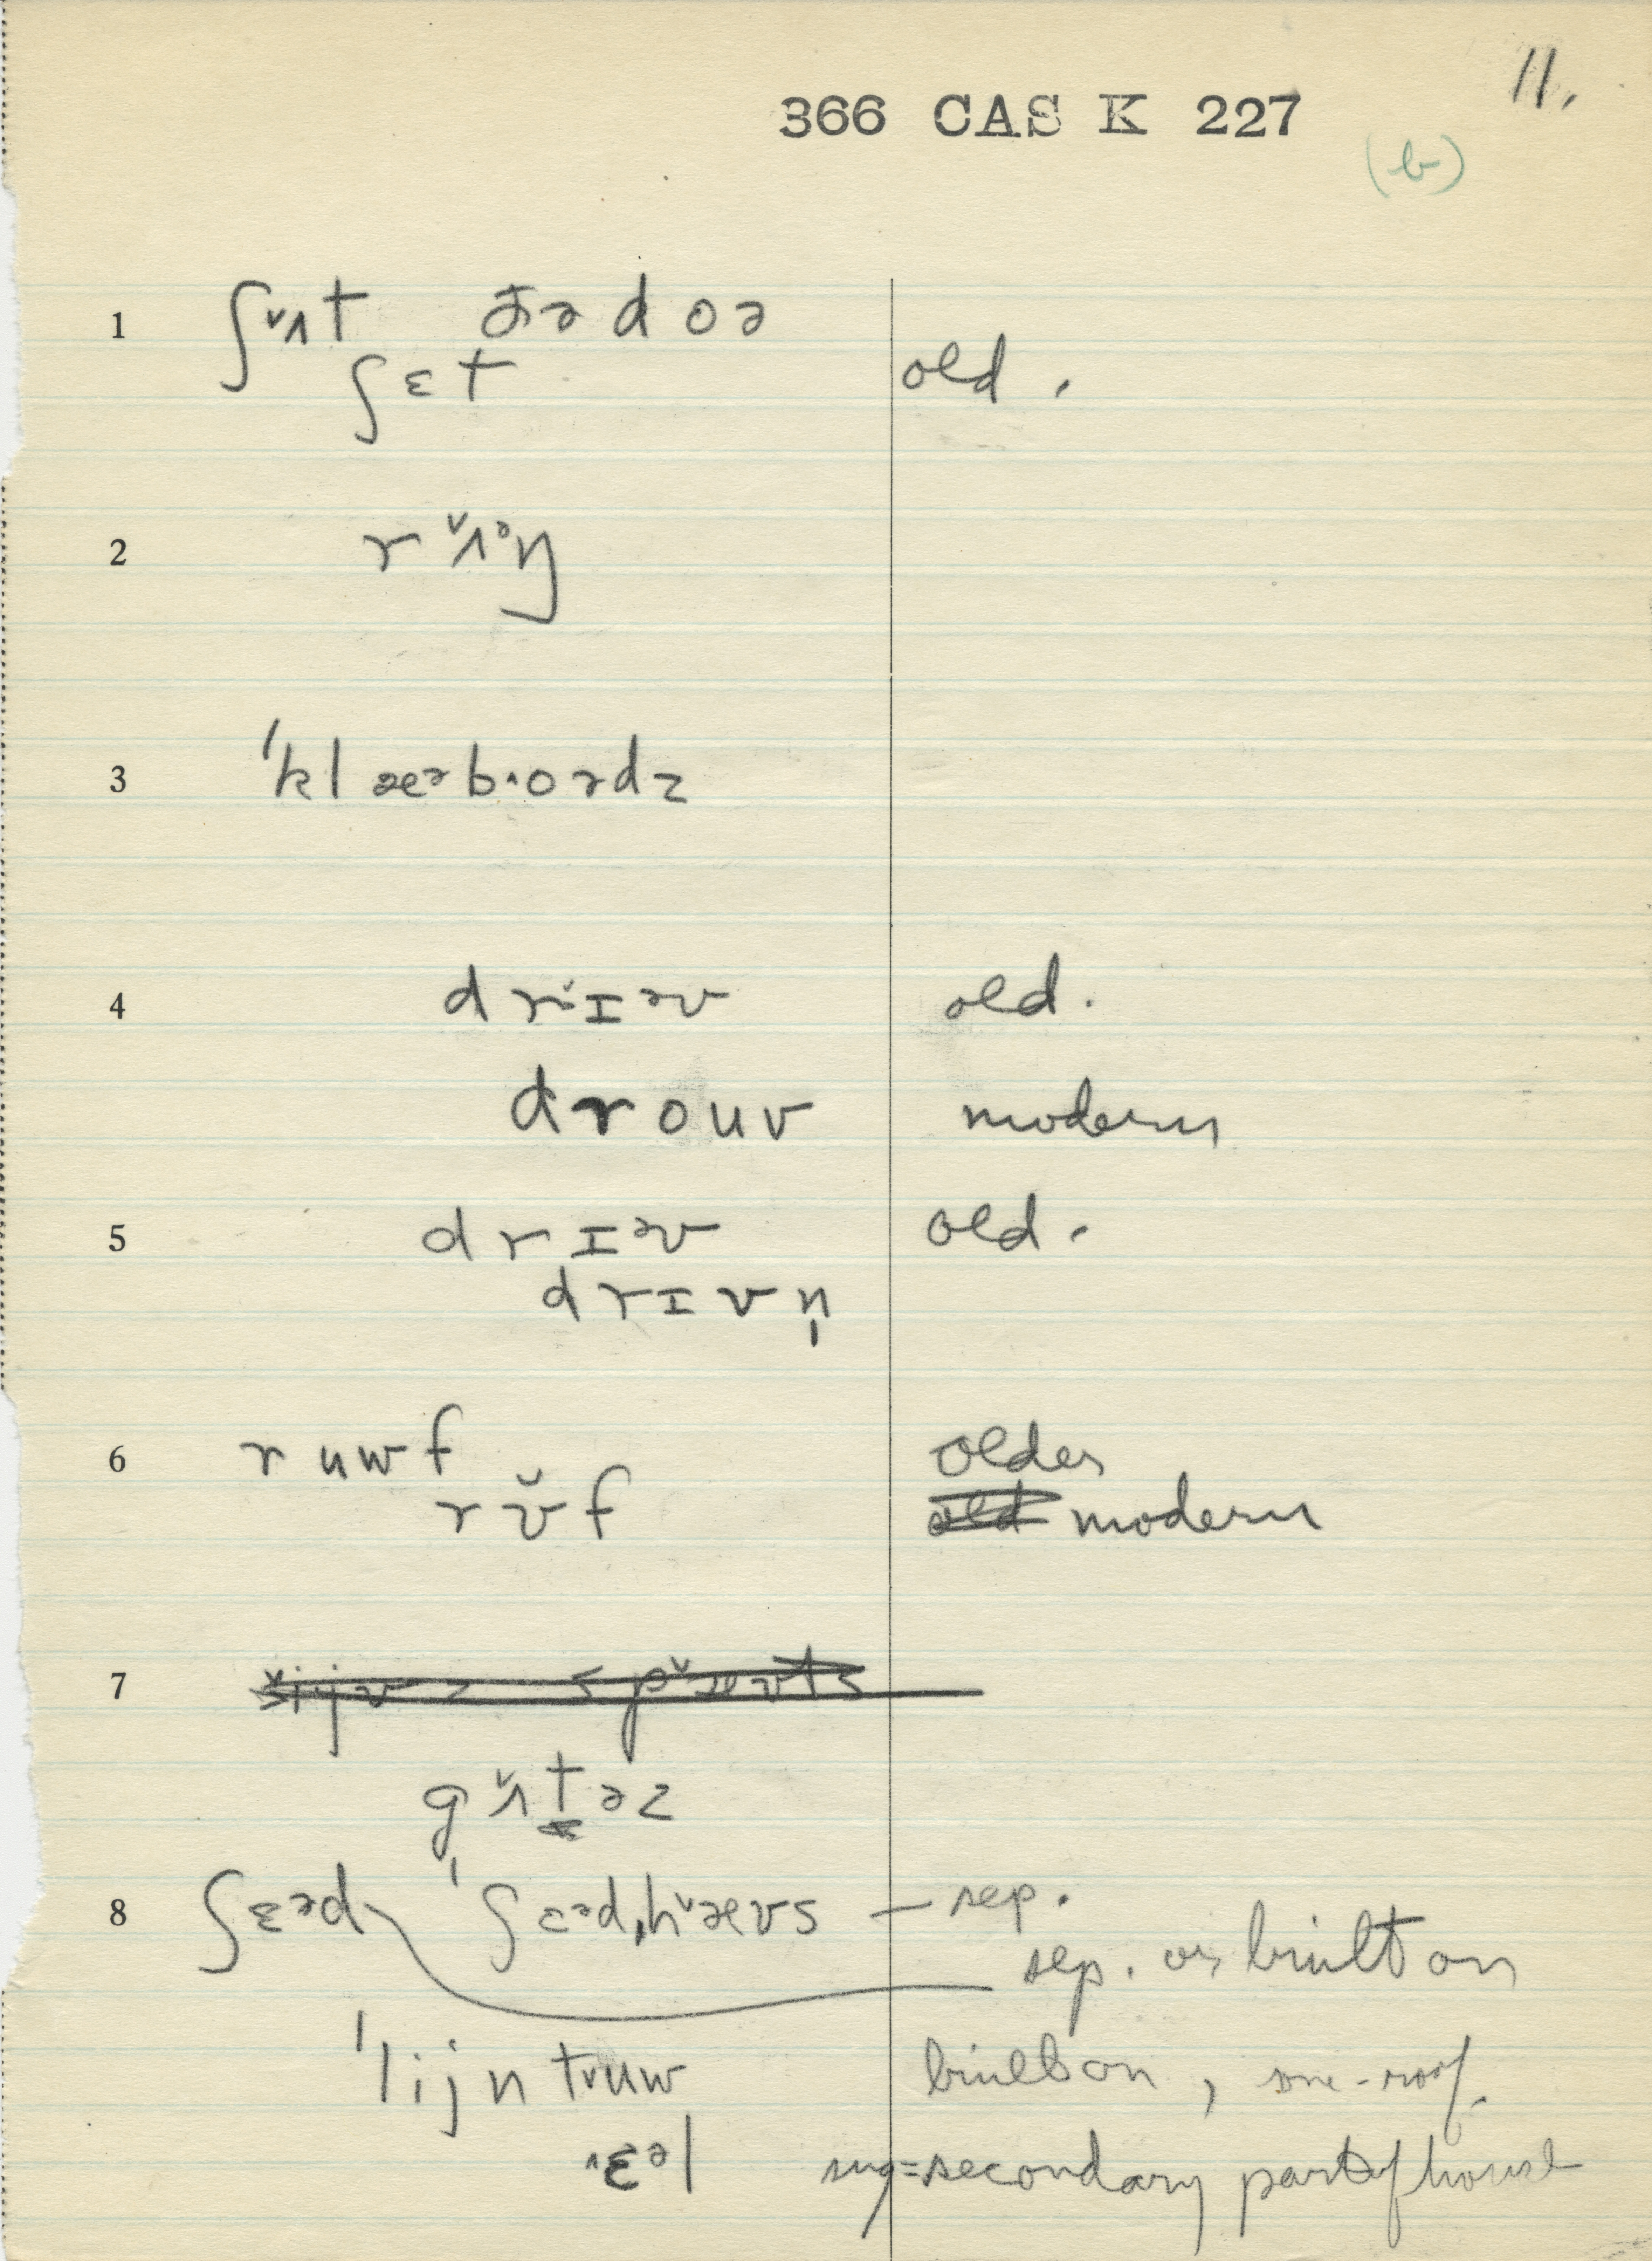 11.
366 CAS K 227
(b)
1 ʃʌ̌t ðə doə
ʃɛt old.
2 rʌ̌ᵊŋ
3 ˈklæᵊb˄oədz
4 drɪ̌ᵊv old.
drouv modern
5 drɪᵊv old.
drɪvn̩
6 ruwf older
rʊ̌f old modern
7
gʌ̌t̬əz
8 ʃɛᵊd ˈʃɛᵊdˌhæ̌ʊs – sep.
sep. or built on
ˈlijntʊuw built on, one-roof.
˄ɛᵊl sug=secondary part of house